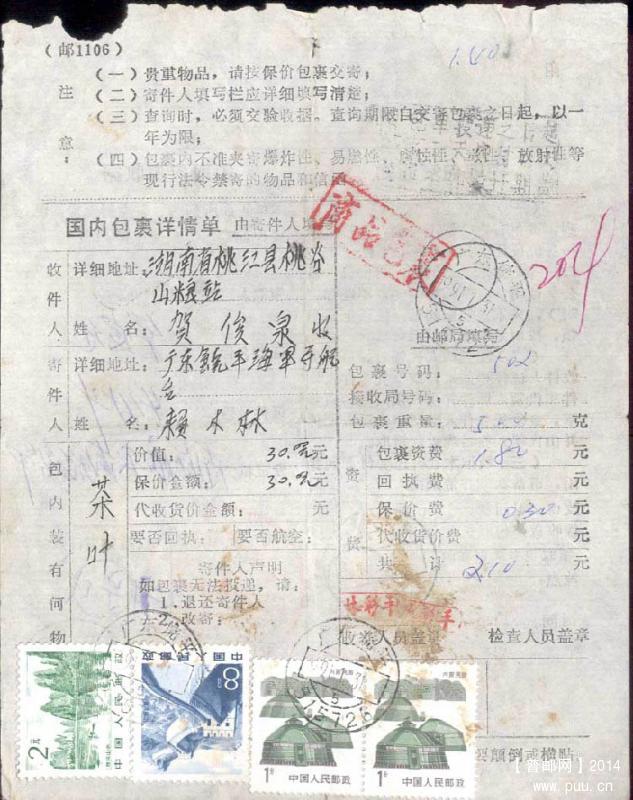 (邮1106)
1.40
注意:
(一)贵重物品,请按保价包裹交寄;
(二)寄件人填写栏应详细填写清楚;
(三)查询时,必须交验收据。查询期限自交寄包裹之日起,以一
年为限;
(四)包裹内不准夹寄爆炸性、易燃性、腐蚀性、放射性等
现行法令禁寄的物品和信函
国内包裹详情单 由寄件人填写
商品包裹
204
收件人
详细地址:湖南省桃江县桃谷
山粮站
姓名:贺俊泉收
寄件人
详细地址:广东饶平海军导航
台
姓名:赖木林
由邮局填写
包裹号码: 502
接收局号码:
包裹重量: 克
包内装有何物
茶叶
价值: 30.00元
保价金额: 30.00元
代收货价金额: 元
要否回执: 要否航空:
资费
包裹资费 1.80元
回执费 元
保价费 0.30元
代收货价费 元
共计 2.10元
寄件人声明
如包裹无法投递,请:
1.退还寄件人
2.改寄:
收寄人员盖章
检查人员盖章
广东饶平
515726
2元
中国人民邮政
8分
中国人民邮政
1分
中国人民邮政
内蒙民居
1分
中国人民邮政
内蒙民居
要颠倒或横贴
【普邮网】2014
www.puu.cn